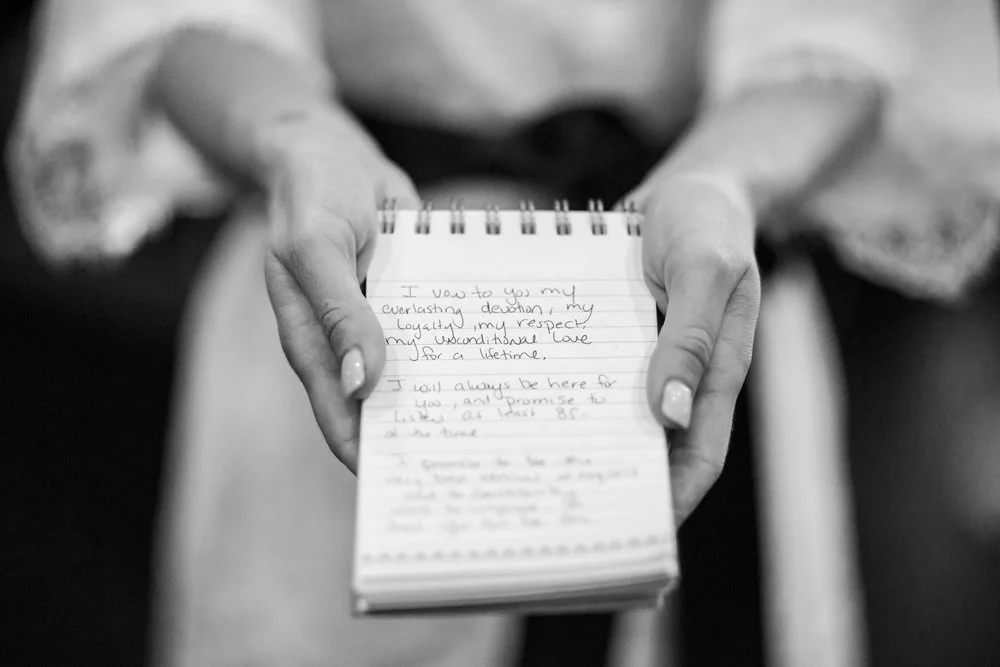 I vow to you my
everlasting devotion, my
loyalty, my respect.
my unconditional love
for a lifetime.
I will always be here for
you, and promise to
listen at least 85-
of the time.
I promise to be the
very best
and to
work to
that